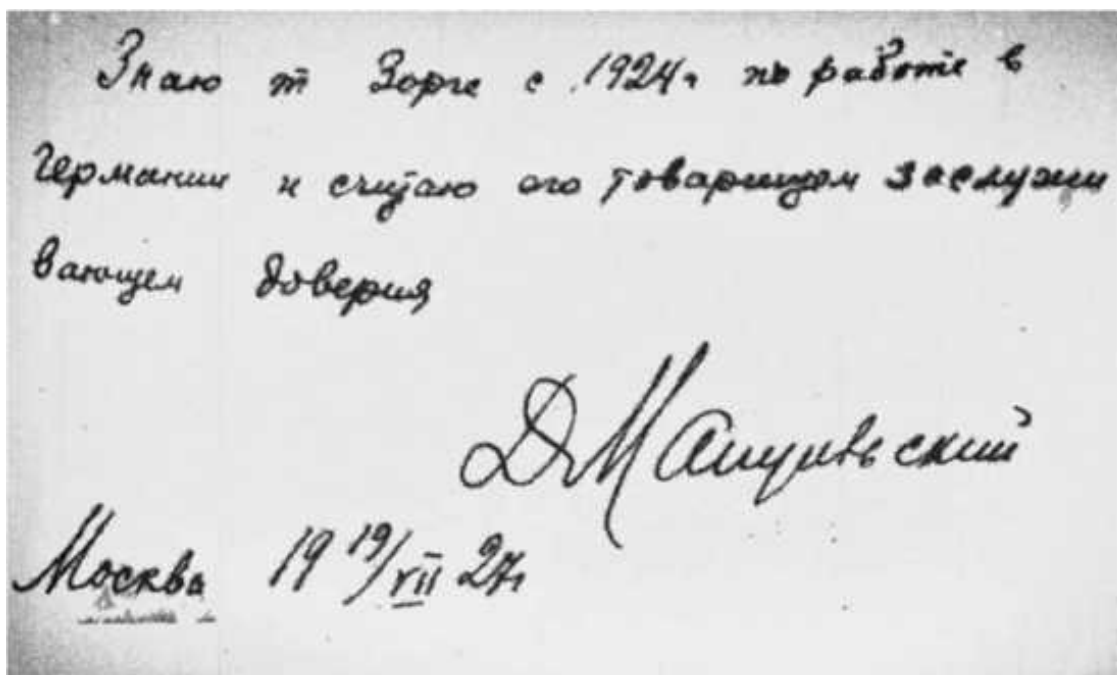 Знаю т Зорге с 1924 г по работе в
Германии и считаю его товарищем заслужи
вающем доверия
Д Мануильский
Москва 19 19/VII 27 г